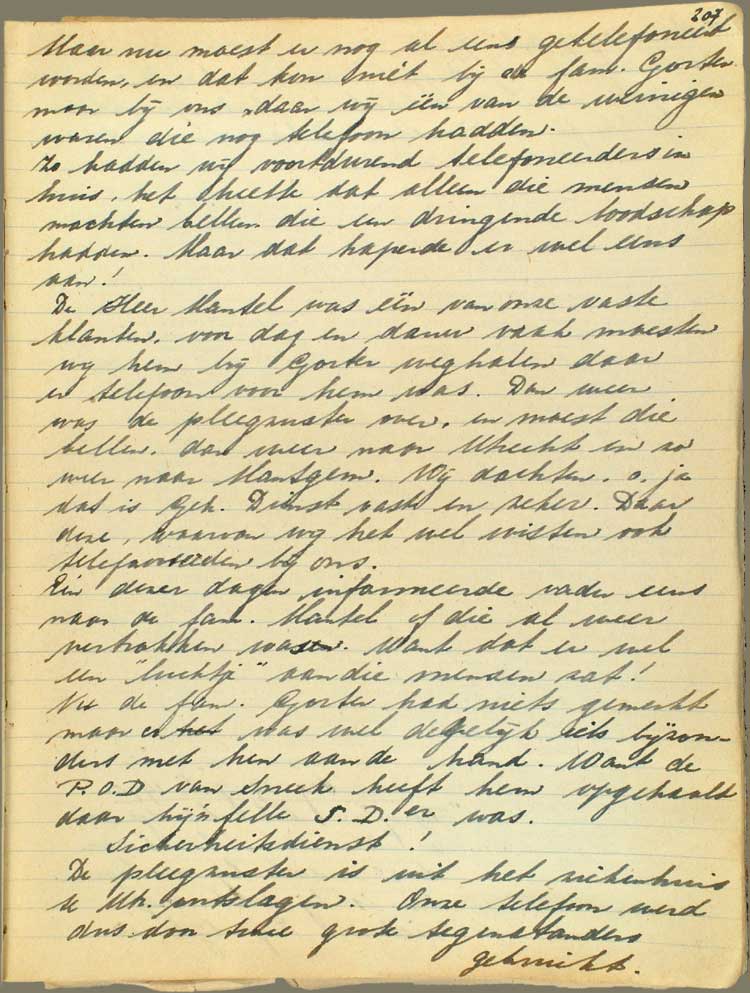 207
Maar nu moest er nog al eens getelefoneerd
worden, en dat kon niet bij de fam. Gorter
maar bij ons, daar wij één van de weinigen
waren die nog telefoon hadden.
Zo hadden wij voortdurend telefoneerders in
huis, het heette dat alleen die mensen
mochten bellen die een dringende boodschap
hadden. Maar dat haperde er wel eens
aan!
De Heer Mantel was één van onze vaste
klanten, voor dag en dauw vaak moesten
wij hem bij Gorter weghalen daar
er telefoon voor hem was. Dan weer
was de pleegzuster over, en moest die
bellen, dan weer naar Utrecht en zo
weer naar Mantgem. Wij dachten, o, ja
dat is Geh. Dienst vast en zeker. Daar
deze, waarvan wij het wel wisten ook
telefoneerden bij ons.
Eén dezer dagen informeerde vader eens
naar de fam. Mantel of die al weer
vertrokken waren. Want dat er wel
een "luchtje" aan die mensen zat!
Nu de fam. Gorter had niets gemerkt
maar er het was wel degelijk iets bijzon-
ders met hen aan de hand. Want de
P.O.D van Sneek heeft hem opgehaald
daar hij 'n felle S.D.er was.
Sicherheitsdienst!
De pleegzuster is uit het ziekenhuis
te Utr. ontslagen. Onze telefoon werd
dus door twee grote tegenstanders
gebruikt.